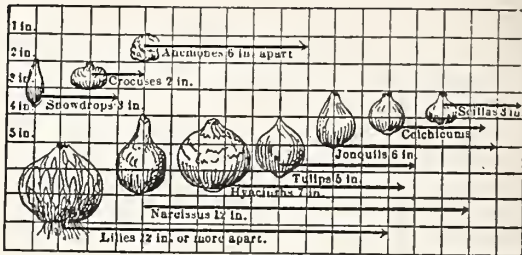 1 in.
2 in.
Anemones 6 in. apart
3 in.
Crocuses 2 in.
4 in.
Snowdrops 3 in.
Scillas 3 in
Colchicum
5 in.
Jonquils 6 in.
Tulips 5 in.
Hyacinths 7 in.
Narcissus 12 in.
Lilies 12 in. or more apart.